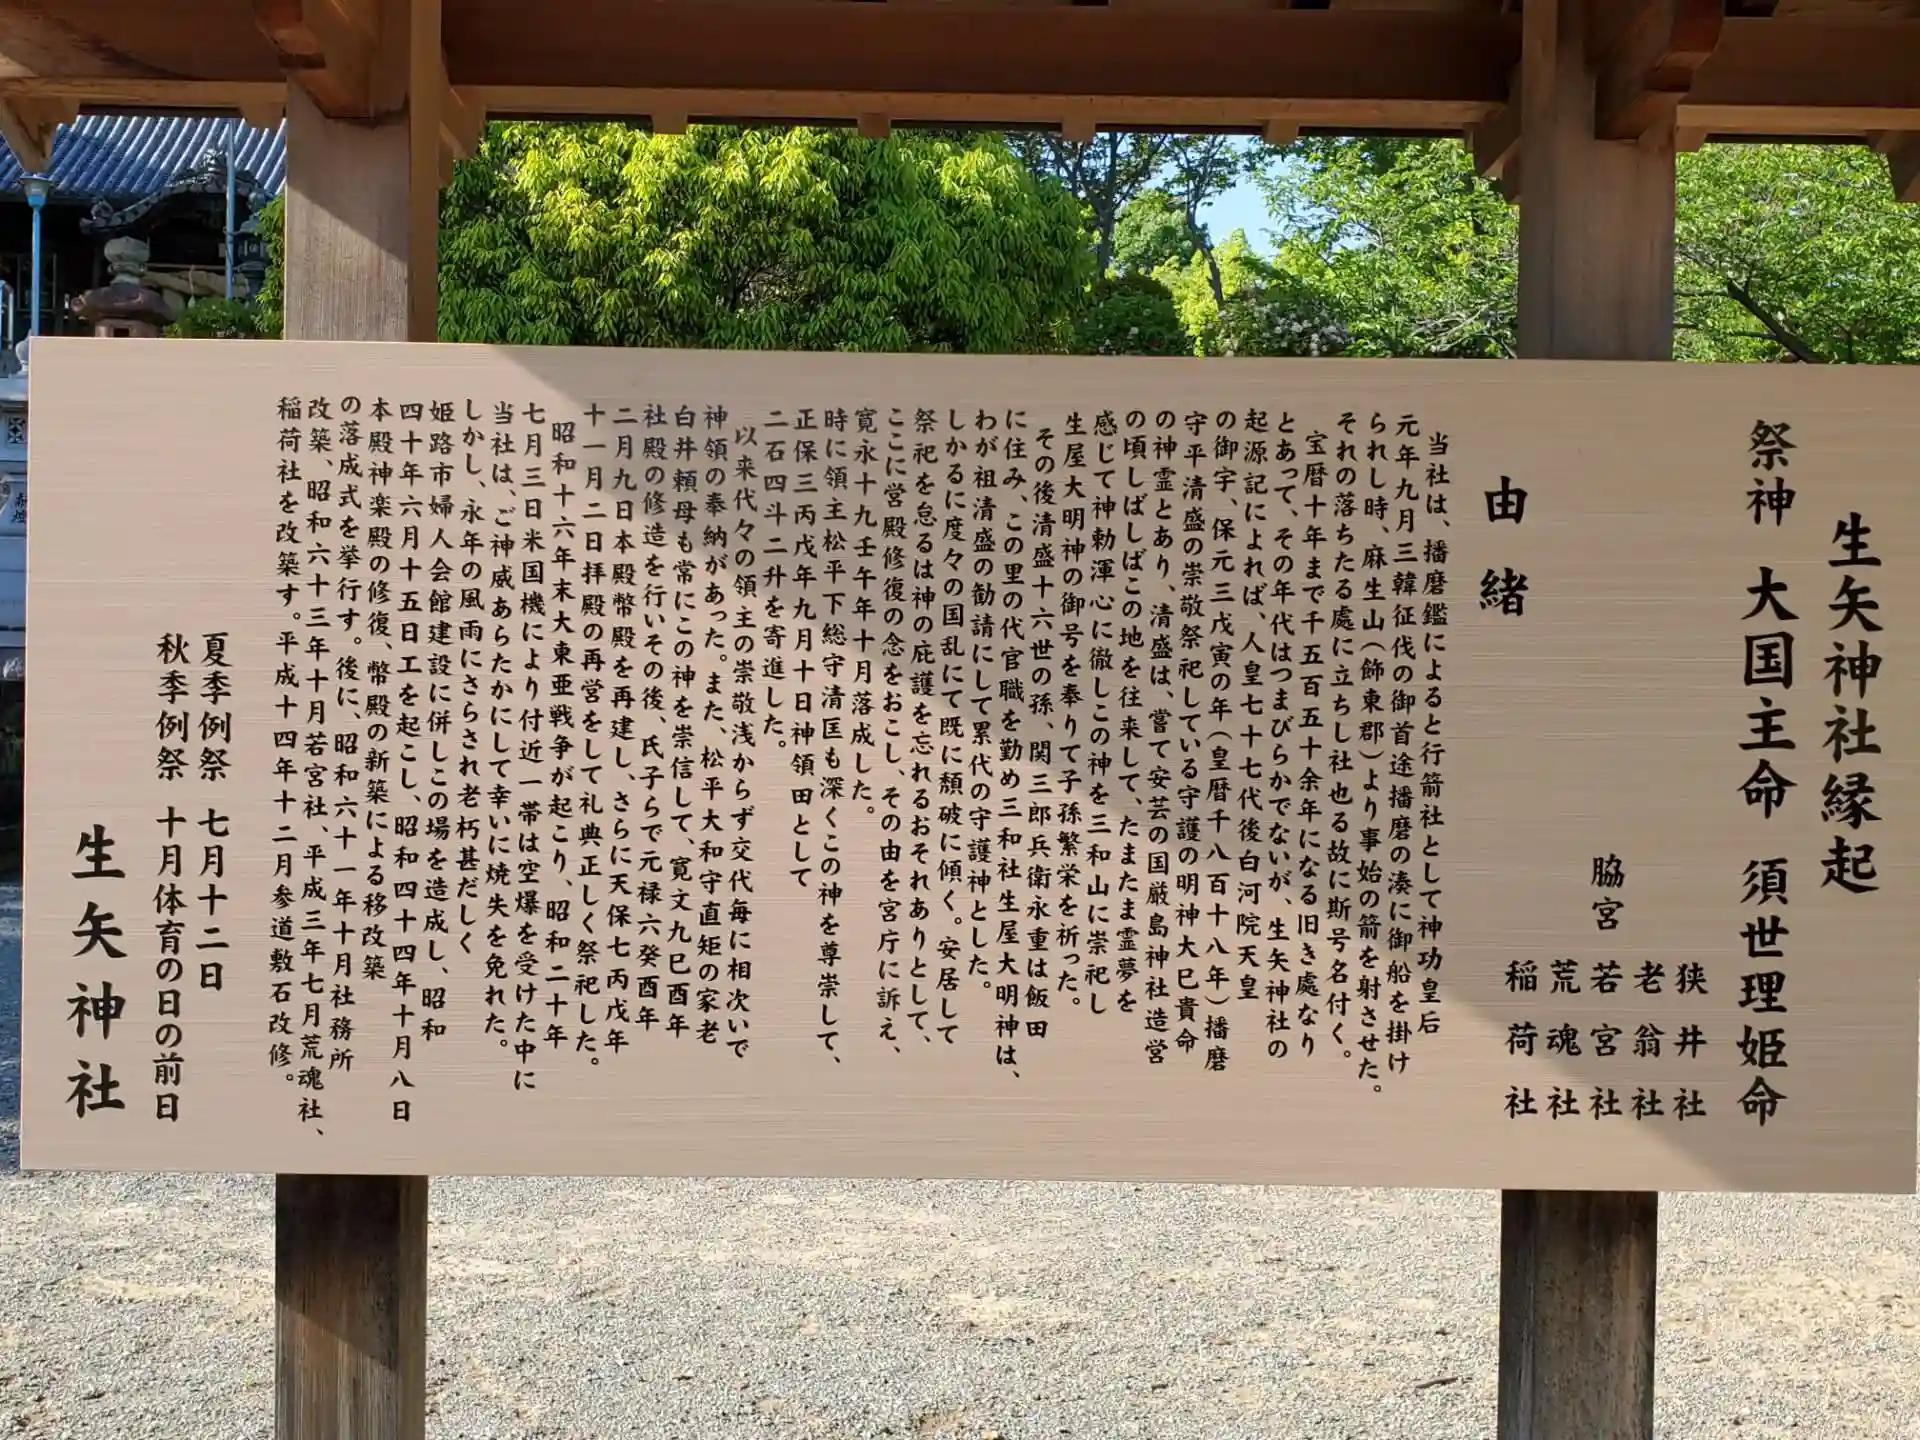 生矢神社縁起
祭神 大国主命 須世理姫命
脇宮
狭井社
老翁社
若宮社
荒魂社
稲荷社
由緒
当社は、播磨鑑によると行箭社として神功皇后
元年九月三韓征伐の御首途播磨の湊に御船を掛け
られし時、麻生山(飾東郡)より事始の箭を射させた。
それの落ちたる處に立ちし社也る故に斯号名付く。
宝暦十年まで千五百五十余年になる旧き處なり
とあって、その年代はつまびらかでないが、生矢神社の
起源記によれば、人皇七十七代後白河院天皇
の御宇、保元三戊寅の年(皇暦千八百十八年)播磨
守平清盛の崇敬祭祀している守護の明神大巳貴命
の神霊とあり、清盛は、嘗て安芸の国厳島神社造営
の頃しばしばこの地を往来して、たまたま霊夢を
感じて神勅渾心に徹しこの神を三和山に崇祀し
生屋大明神の御号を奉りて子孫繁栄を祈った。
その後清盛十六世の孫、関三郎兵衛永重は飯田
に住み、この里の代官職を勤め三和社生屋大明神は、
わが祖清盛の勧請にして累代の守護神とした。
しかるに度々の国乱にて既に頽破に傾く。安居して
祭祀を怠るは神の庇護を忘れるおそれありとして、
ここに営殿修復の念をおこし、その由を宮庁に訴え、
寛永十九壬午年十月落成した。
時に領主松平下総守清匡も深くこの神を尊崇して、
正保三丙戊年九月十日神領田として
二石四斗二升を寄進した。
以来代々の領主の崇敬浅からず交代毎に相次いで
神領の奉納があった。また、松平大和守直矩の家老
白井頼母も常にこの神を崇信して、寛文九巳酉年
社殿の修造を行いその後、氏子らで元禄六癸酉年
二月九日本殿幣殿を再建し、さらに天保七丙戊年
十一月二日拝殿の再営をして礼典正しく祭祀した。
昭和十六年末大東亜戦争が起こり、昭和二十年
七月三日米国機により付近一帯は空爆を受けた中に
当社は、ご神威あらたかにして幸いに焼失を免れた。
しかし、永年の風雨にさらされ老朽甚だしく
姫路市婦人会館建設に併しこの場を造成し、昭和
四十年六月十五日工を起こし、昭和四十四年十月八日
本殿神楽殿の修復、幣殿の新築による移改築
の落成式を挙行す。後に、昭和六十一年十月社務所
改築、昭和六十三年十月若宮社、平成三年七月荒魂社、
稲荷社を改築す。平成十四年十二月参道敷石改修。
夏季例祭 七月十二日
秋季例祭 十月体育の日の前日
生矢神社